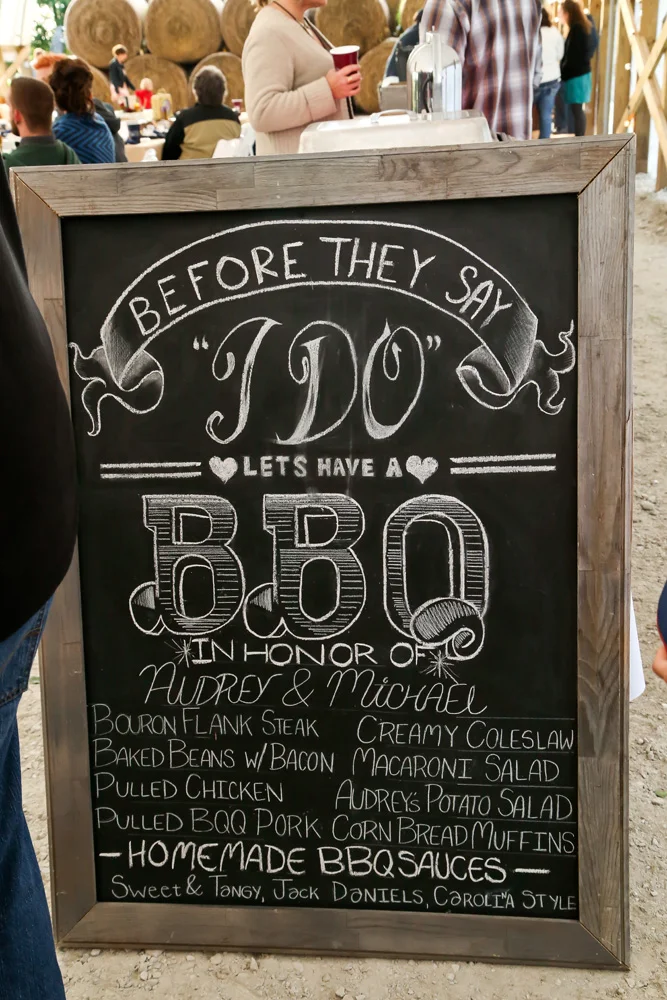 BEFORE THEY SAY
"I DO"
LETS HAVE A
BBQ
IN HONOR OF
AUDREY & MICHAEL
BOURON FLANK STEAK
BAKED BEANS W/BACON
PULLED CHICKEN
PULLED BQQ PORK
CREAMY COLESLAW
MACARONI SALAD
AUDREY'S POTATO SALAD
CORN BREAD MUFFINS
- HOMEMADE BBQ SAUCES -
SWEET & TANGY, JACK DANIELS, CAROLINA STYLE